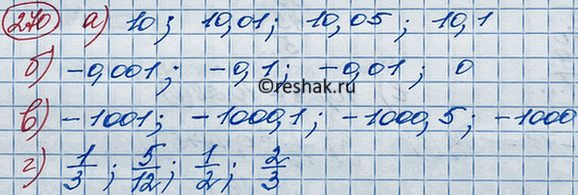 270 а) 10; 10,01; 10,05; 10,1
б) -0,001; -0,1; -0,01; 0
©reshak.ru
в) -1001; -1000,1; -1000,5; -1000
г) 1/3; 5/12; 1/2; 2/3